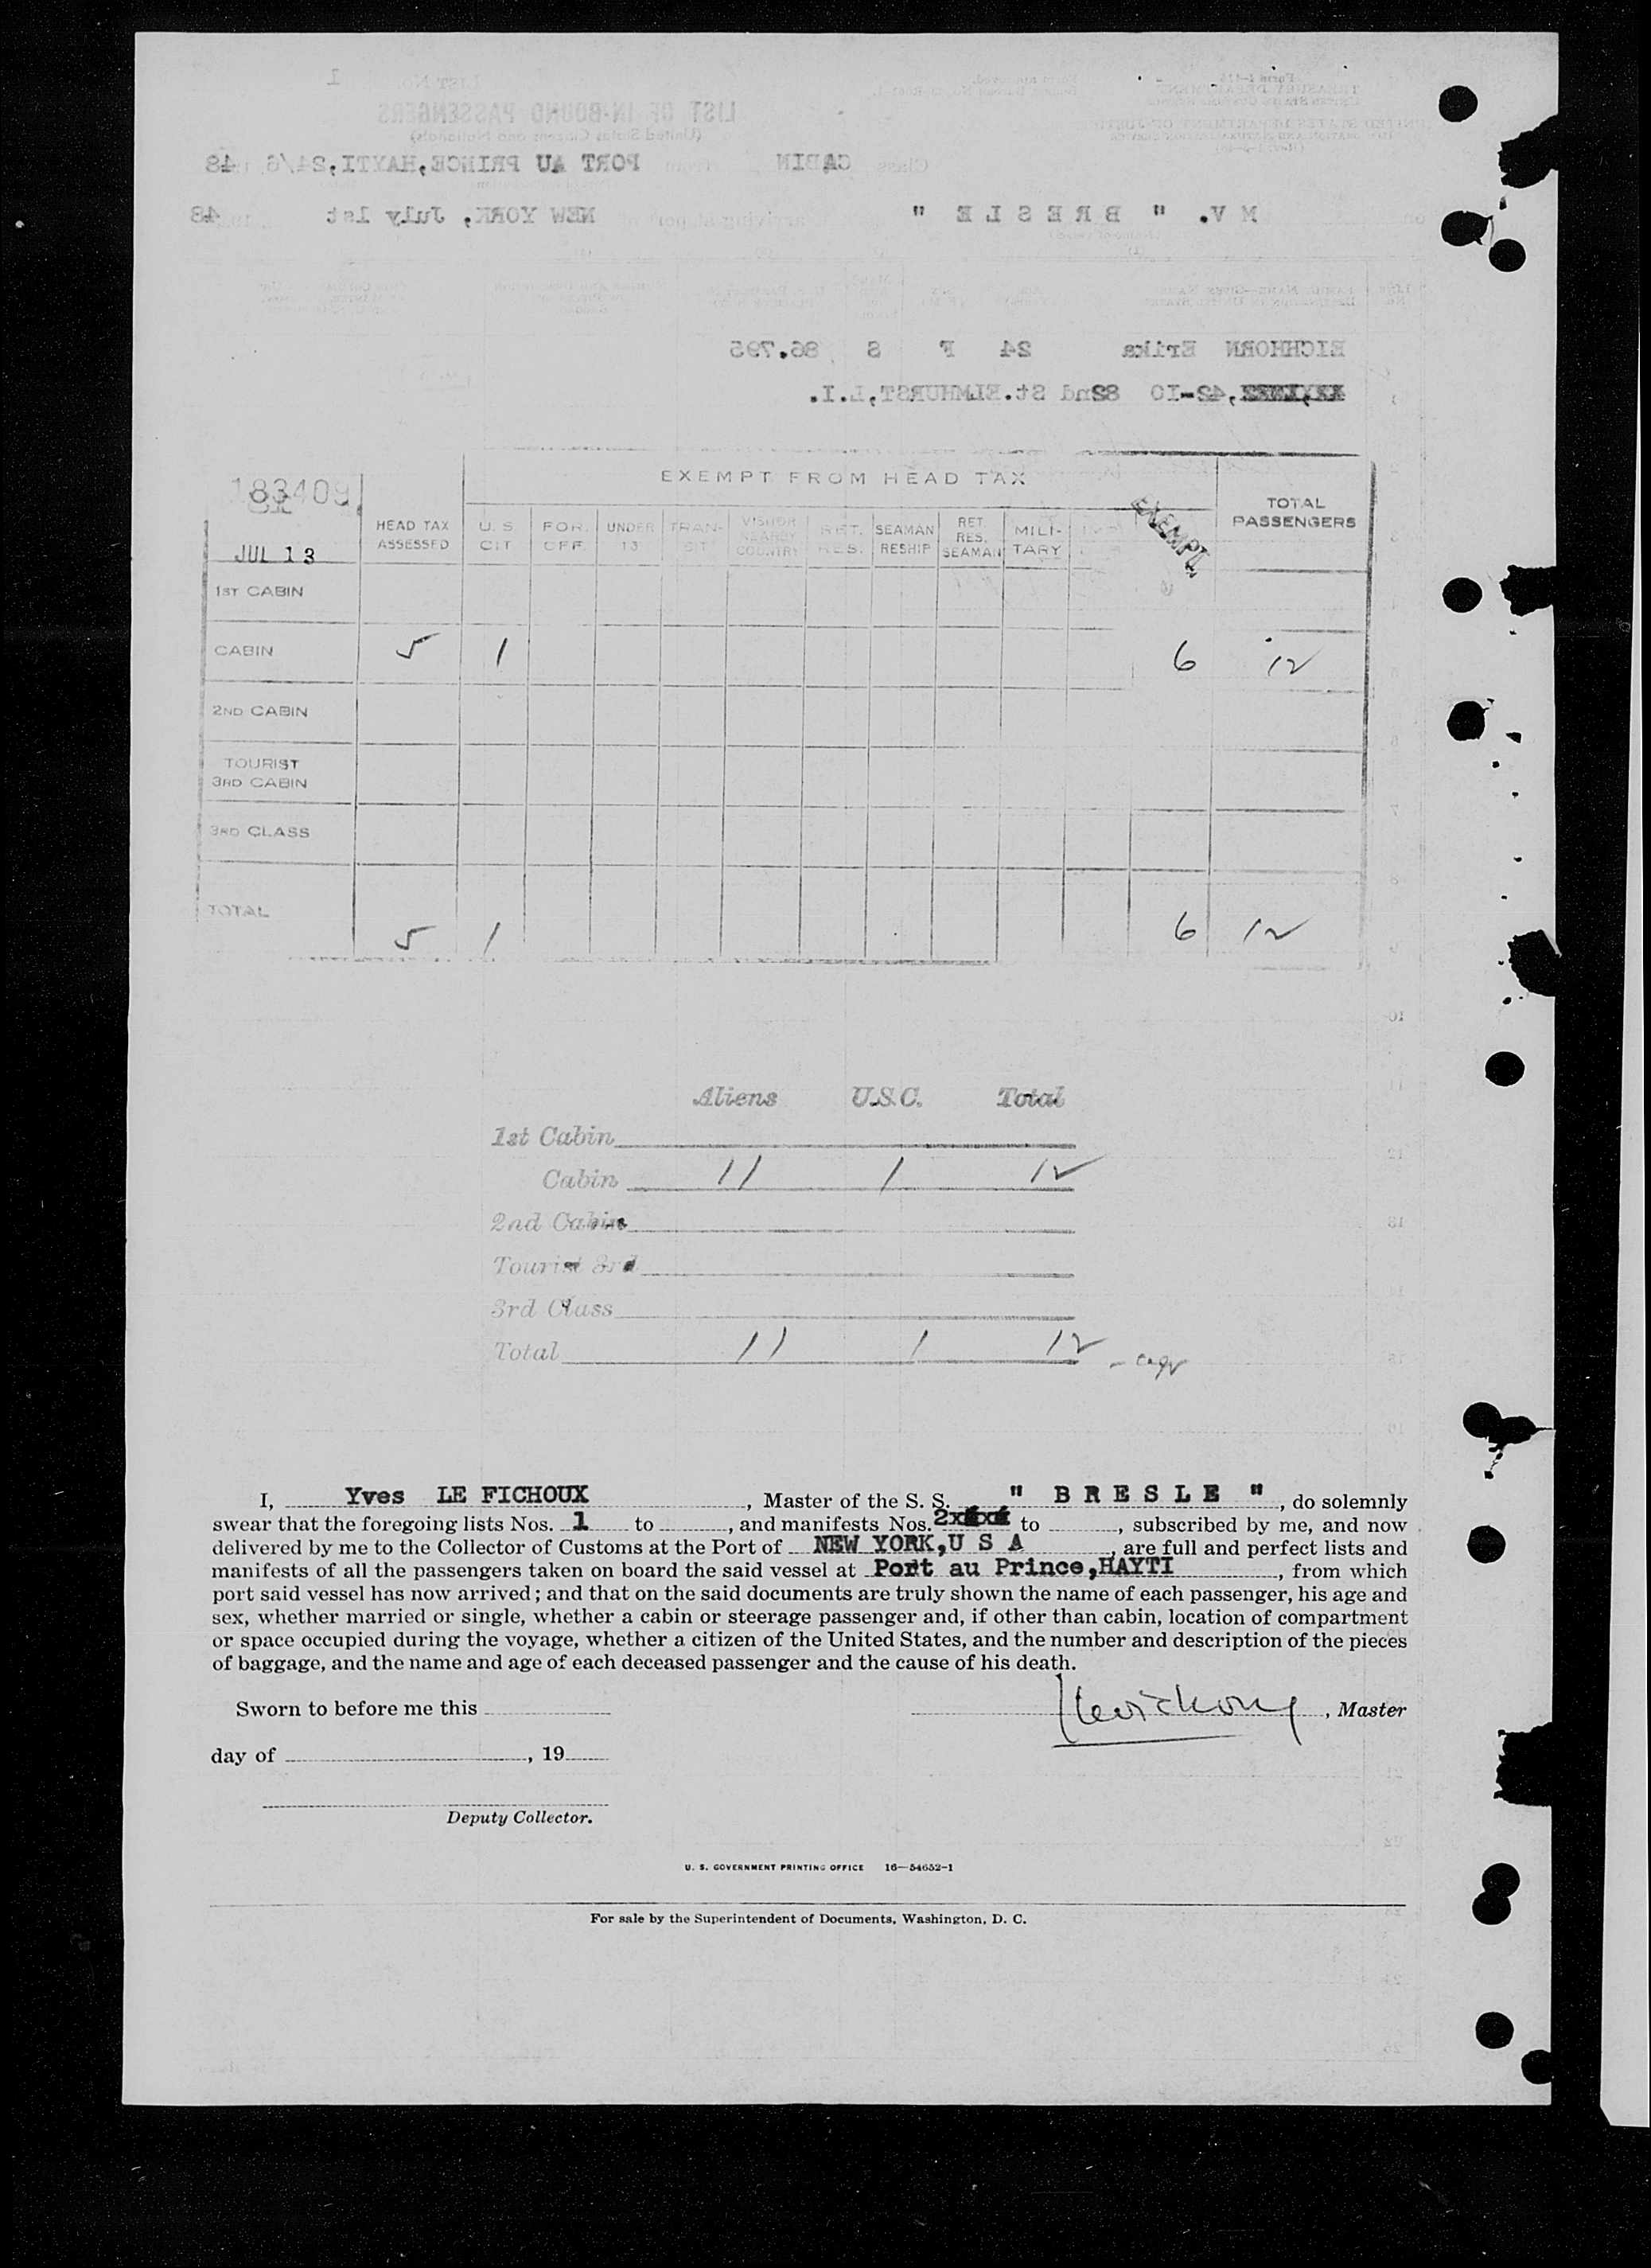 LIST No. 1
LIST OF IN-BOUND PASSENGERS
(United States Citizens and Nationals)
Class CABIN from PORT AU PRINCE,HAYTI,24/6 48
M V. " B R E S L E " arriving at port of NEW YORK, July 1st 48
EICHHORN Erika 24 F S 86.795
42-IO 82nd St.ELMHURST,L.I.
183409
JUL 13
EXEMPT FROM HEAD TAX
HEAD TAX ASSESSED
U. S. CIT
FOR. OFF.
UNDER 13
TRAN-SIT
VISITOR NEARBY COUNTRY
RET. RES.
SEAMAN RESHIP
RET. RES. SEAMAN
MILI-TARY
EXEMPT
TOTAL PASSENGERS
1ST CABIN
CABIN 5 1 6 12
2ND CABIN
TOURIST
3RD CABIN
3RD CLASS
TOTAL 5 1 6 12
Aliens U.S.C. Total
1st Cabin
Cabin 11 1 12
2nd Cabin
Tourist 3rd
3rd Class
Total 11 1 12
I, Yves LE FICHOUX, Master of the S. S. " B R E S L E ", do solemnly
swear that the foregoing lists Nos. 1 to , and manifests Nos. 2 to , subscribed by me, and now
delivered by me to the Collector of Customs at the Port of NEW YORK,U S A, are full and perfect lists and
manifests of all the passengers taken on board the said vessel at Port au Prince,HAYTI, from which
port said vessel has now arrived; and that on the said documents are truly shown the name of each passenger, his age and
sex, whether married or single, whether a cabin or steerage passenger and, if other than cabin, location of compartment
or space occupied during the voyage, whether a citizen of the United States, and the number and description of the pieces
of baggage, and the name and age of each deceased passenger and the cause of his death.
Sworn to before me this
, Master
day of , 19
Deputy Collector.
U. S. GOVERNMENT PRINTING OFFICE 16—54652-1
For sale by the Superintendent of Documents, Washington, D. C.